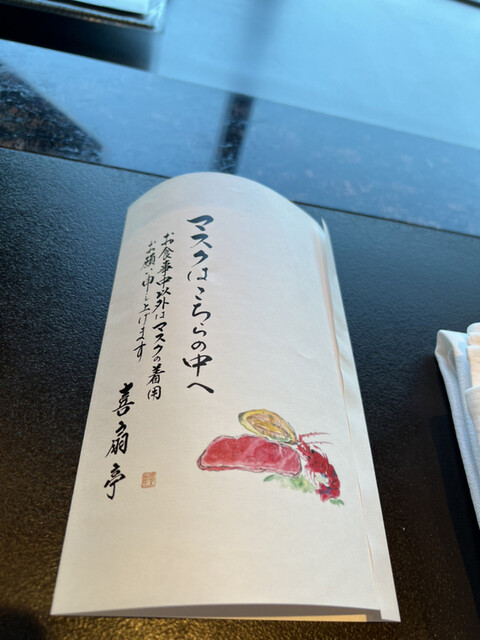 マスクはこちらの中へ
お食事中以外はマスクの着用
お願い申し上げます
喜扇亭